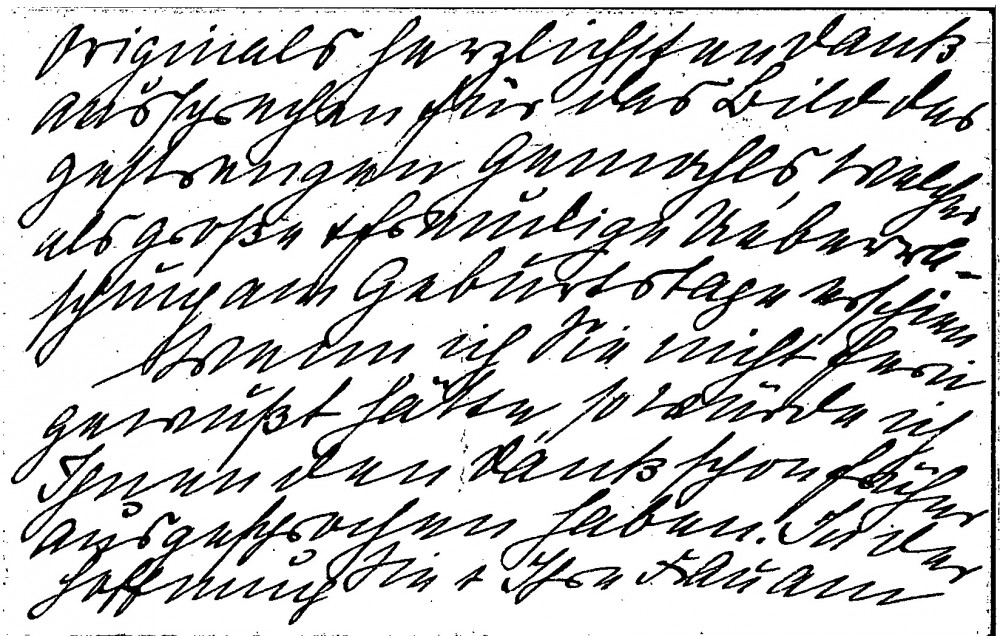 Originals herzlichsten Dank
aussprechen für das Bild des
gestrengen Gemahls welches
als große + freudige Ueberra-
schung am Geburtstage erschien
Wenn ich Sie nicht fern
gewußt hätte, so würde ich
Ihnen den Dank schon früher
ausgesprochen haben. In der
Hoffnung Sie + Ihre Frau am